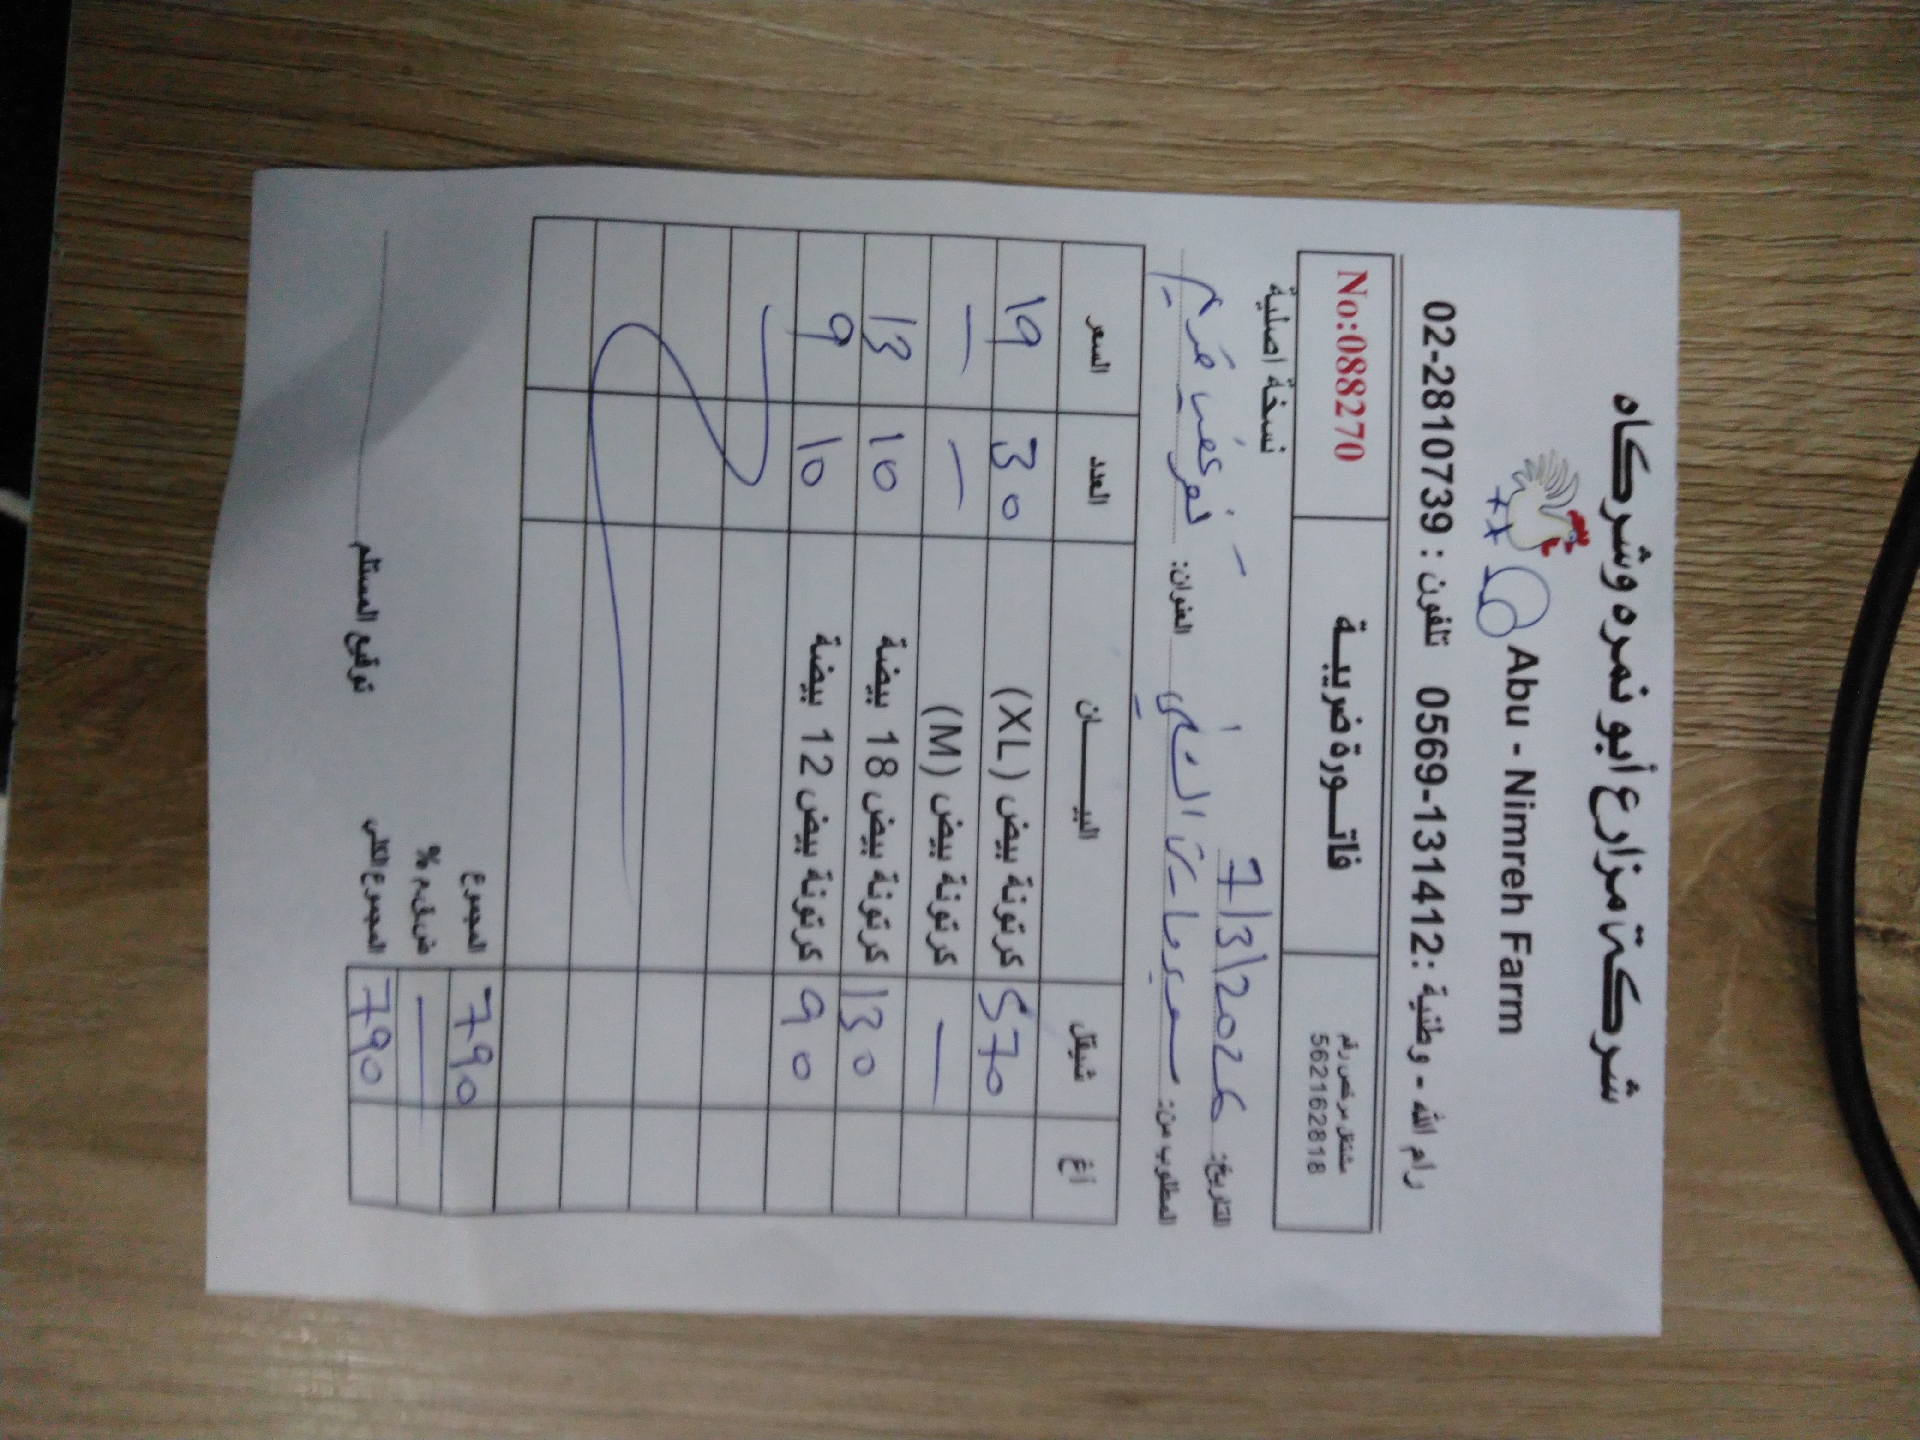 شركة مزارع أبو نمره وشركاه
Abu - Nimreh Farm
رام الله - وطنية : 0569-131412 تلفون : 02-2810739
مشتغل مرخص رقم 562162818
فاتـــورة ضريبـــة
No:088270
نسخة اصلية
التاريخ: 7/3/2026
المطلوب من: سوبر ماركت العنوان:
شيقل أغ البيـــــان العدد السعر
570 كرتونة بيض (XL) 30 19
— كرتونة بيض (M) — —
130 كرتونة بيض 18 بيضة 10 13
90 كرتونة بيض 12 بيضة 10 9
المجموع 790
ض.ق.م % —
المجموع الكلي 790
توقيع المستلم